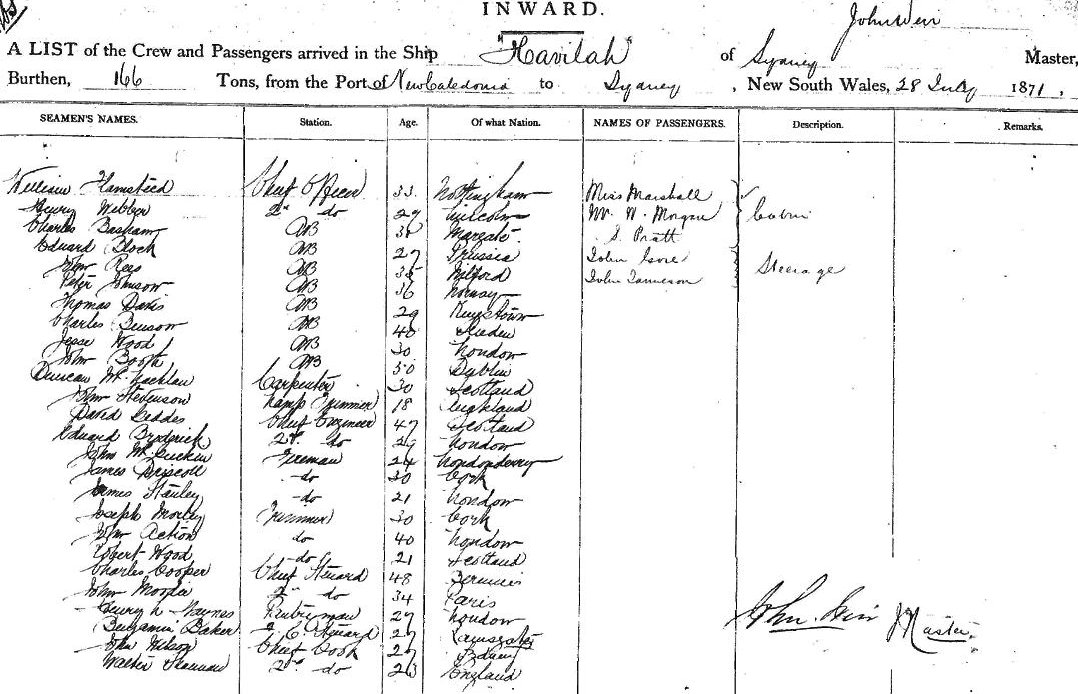 INWARD.
John Weir
A LIST of the Crew and Passengers arrived in the Ship "Havilah" of Sydney Master,
Burthen, 166 Tons, from the Port of New Caledonia to Sydney, New South Wales, 28 July 1871,
SEAMEN'S NAMES. Station. Age. Of what Nation. NAMES OF PASSENGERS. Description. Remarks.
William Chief Officer 33 Nottingham Miss Marshall
Henry Webber 2nd do 29 Lincoln Mr. W. Morgan Cabin
Charles Basham AB Margate S. Pratt
Eduard Block AB 27 Prussia John Gore
John Rees AB 35 Milford John Jameson Steerage
Peter Johnson AB 36 Norway
Thomas Davis AB 29 Kingstown
Charles Benson AB 40
Jesse Wood AB 30 London
John Booth AB 50 Dublin
Duncan McLachlan Carpenter 30 Scotland
John Stevenson Lamp Trimmer 18 England
David Geddes Chief Engineer 47 Scotland
Eduard Broderick 2nd do 29 London
John Fireman 24 Londonderry
James Driscoll -do 30 Cork
James Stanley -do 21 London
Joseph Morley Trimmer 30 Cork
John Action do 40 London
Robert Wood -do 21 Scotland
Charles Cooper Chief Steuard 48
John 2nd do 34 Paris
Henry L. Haynes 27 London
Benjamin Baker 2 C. Steuard 27 Ramsgate
John Wilson Chief Cook 27 Sydney
Walter 2nd do 26 England
John Weir Master